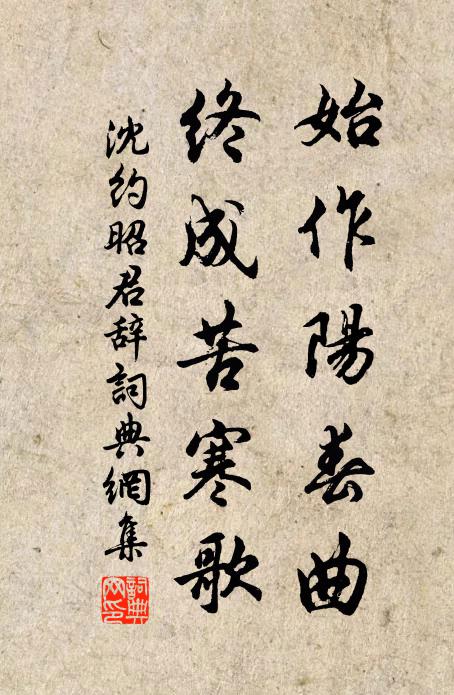 始作陽春曲
終成苦寒歌
沈約昭君辞詞典網集
詞典网印